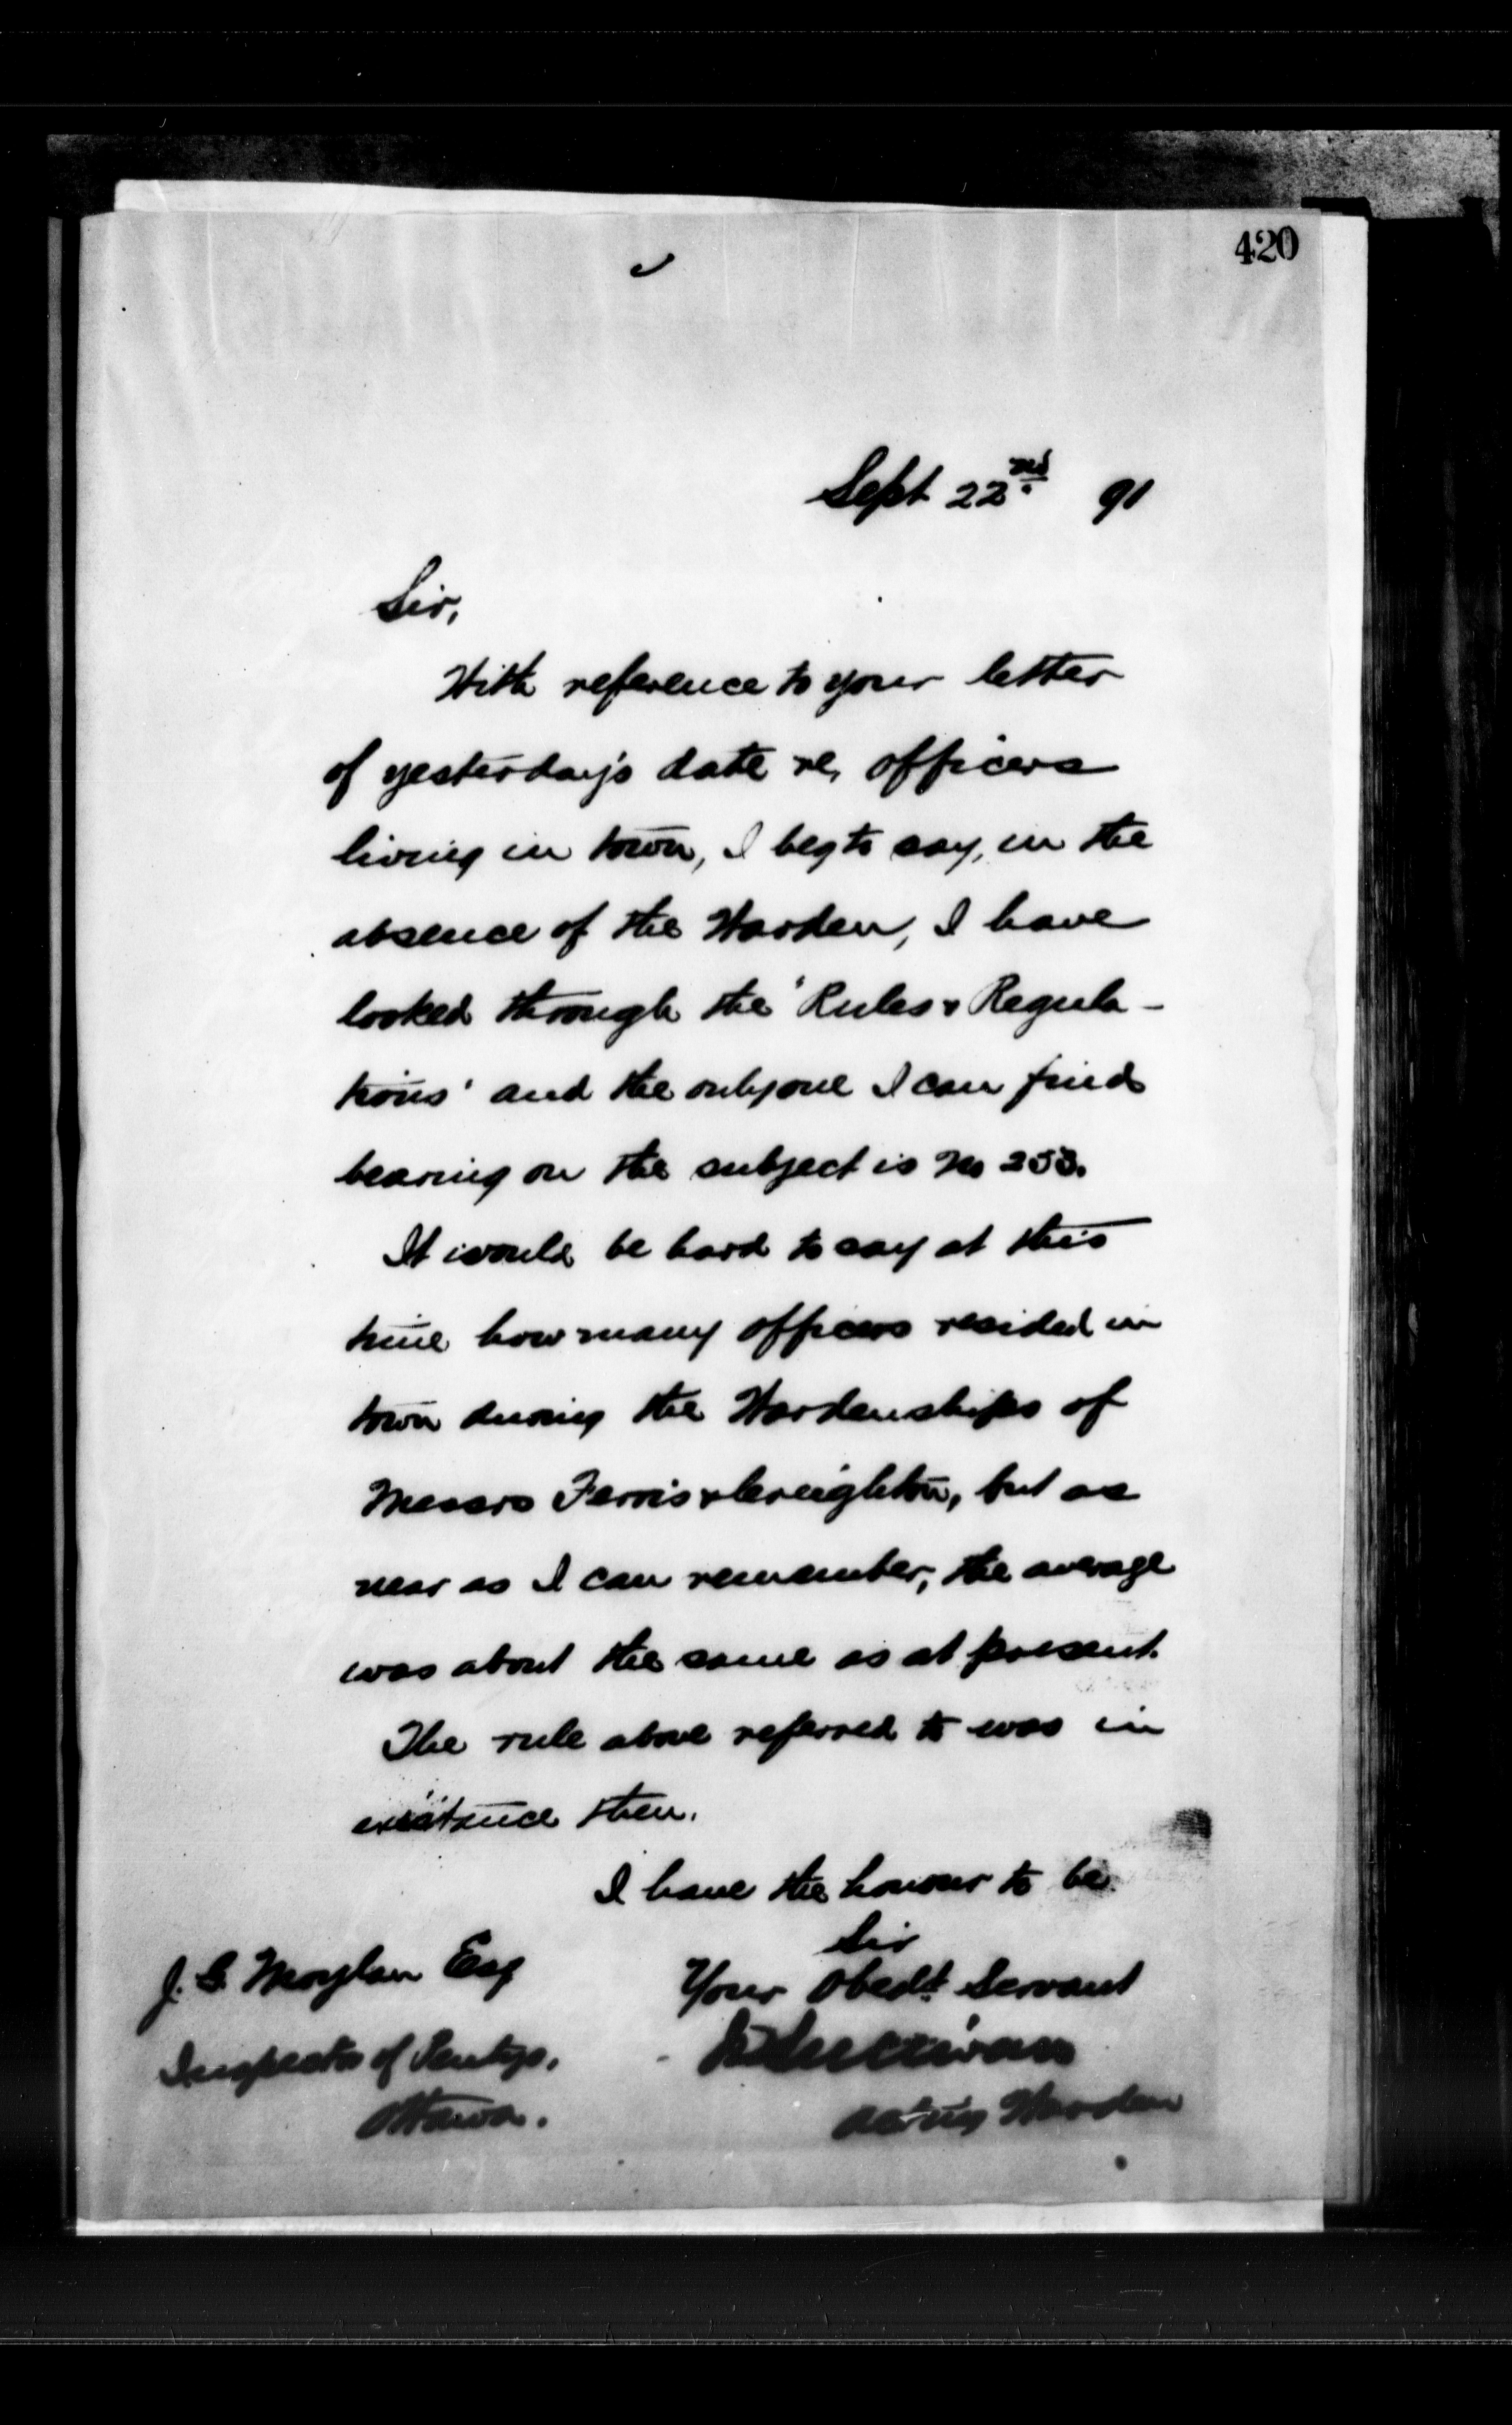 420
Sept 22nd 91
Sir,
With reference to your letter
of yesterday's date re, officers
living in town, I beg to say, in the
absence of the Warden, I have
looked through the 'Rules & Regula-
tions' and the only one I can find
bearing on the subject is No 253.
It would be hard to say at this
time how many officers resided in
town during the Wardenships of
Messrs Ferris & Creighton, but as
near as I can remember, the average
was about the same as at present.
The rule above referred to was in
existence then.
I have the honour to be
Sir
Your Obedt Servant
Sullivan
Acting Warden
J. G. Moylan Esq
Inspector of Pentys.
Ottawa.